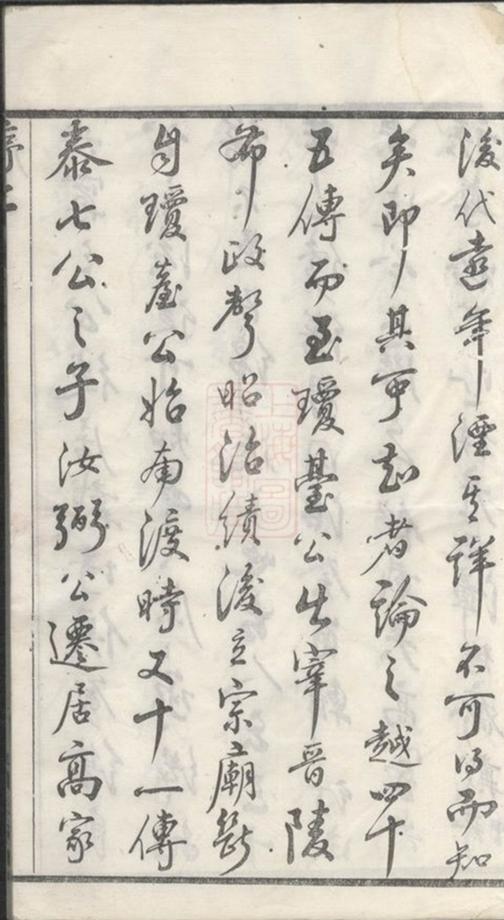 後代遠年湮其詳不可得而知
矣即其可知者論之越四十
五傳而至瓊臺公出宰晉陵
節政聲昭治績後立宗廟斷
自瓊臺公始南渡時又十一傳
泰七公之子汝弼公遷居高家
序二